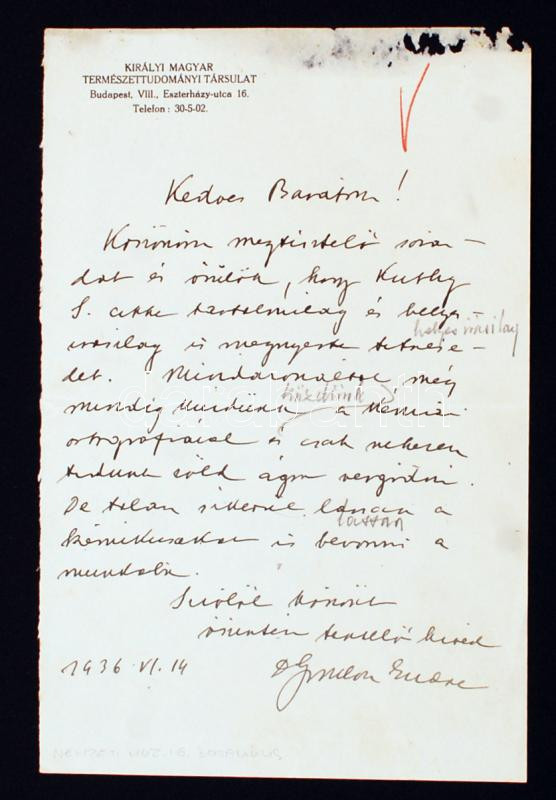 KIRÁLYI MAGYAR
TERMÉSZETTUDOMÁNYI TÁRSULAT
Budapest, VIII., Eszterházy-utca 16.
Telefon: 30-5-02.
Kedves Barátom!
Köszönöm megtisztelő sorai-
dat és örülök, hogy
S. cikke tartalmilag és helyes-
helyesírásilag
írásilag is megnyerte tetszése-
det. Mindazonáltal még
küzdünk
mindig küzdünk a kémiai
ortográfiával és csak nehezen
tudunk zöld ágra vergődni.
De talán sikerül lassan a
lassan
kémikusokat is bevonni a
munkába.
Szívélyes
őszintén tisztelő híved
1936 VI. 14
Dr Endre
darabanth